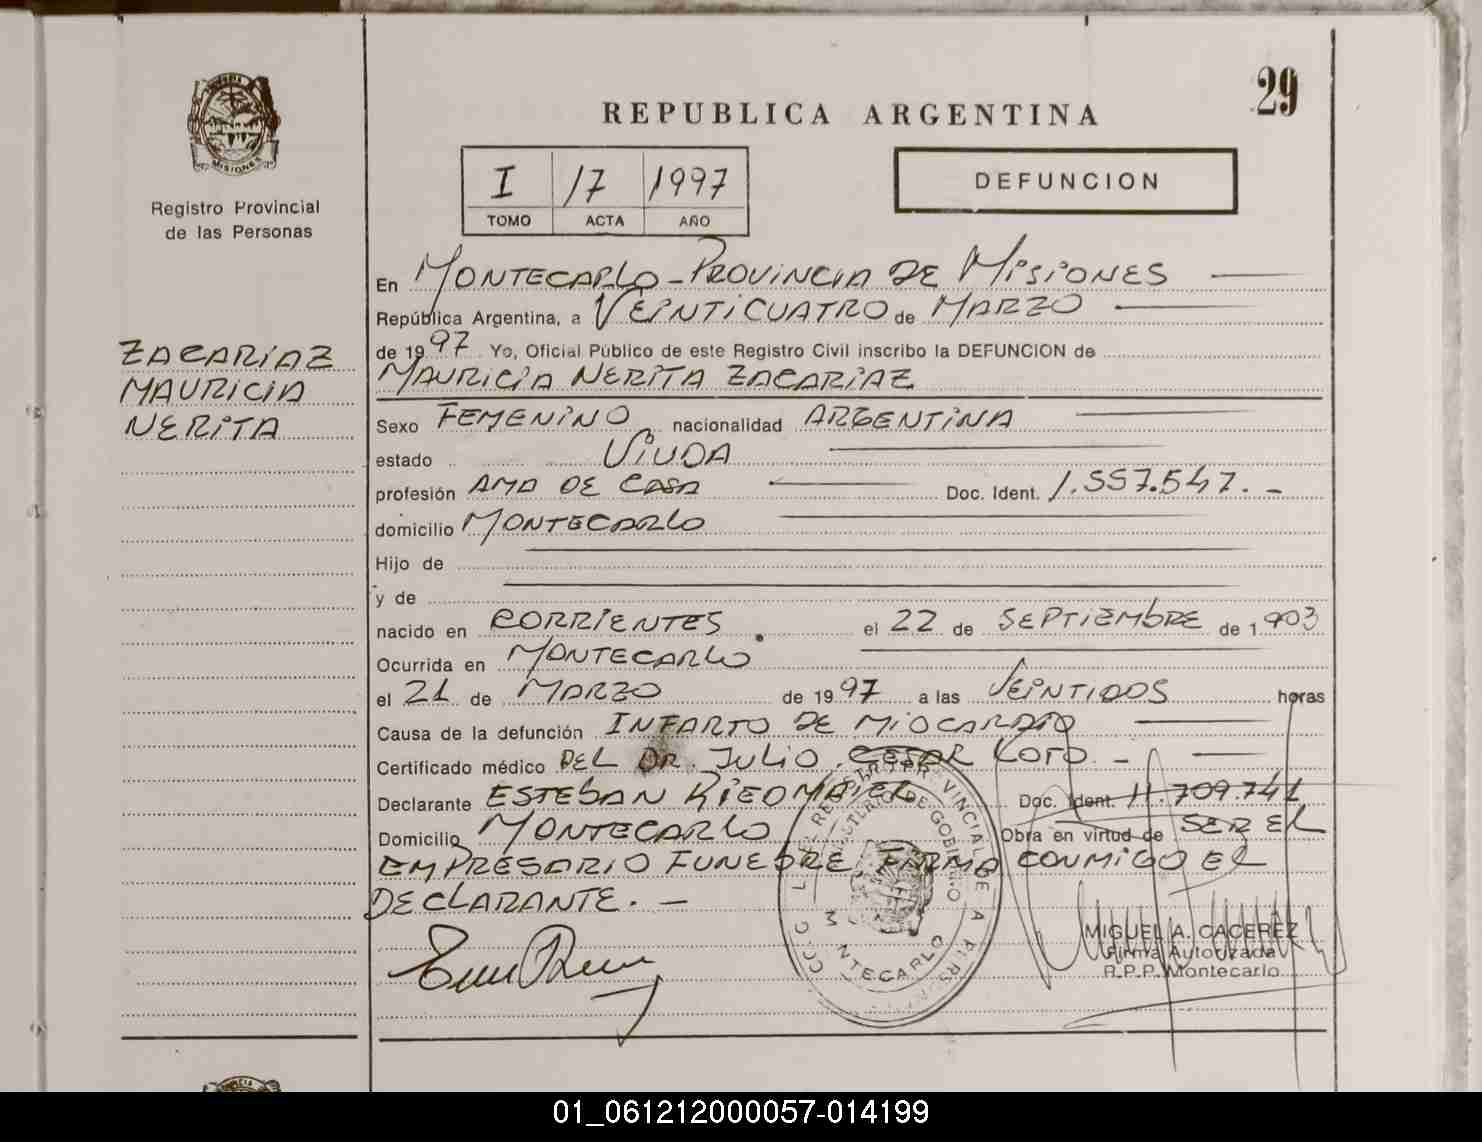 29
REPUBLICA ARGENTINA
MISIONES
Registro Provincial
de las Personas
I 17 1997
TOMO ACTA AÑO
DEFUNCION
ZACARIAZ
MAURICIA
NERITA
En MONTECARLO - PROVINCIA DE MISIONES
República Argentina, a VEINTICUATRO de MARZO
de 1997 Yo, Oficial Público de este Registro Civil inscribo la DEFUNCION de
MAURICIA NERITA ZACARIAZ
Sexo FEMENINO nacionalidad ARGENTINA
estado VIUDA
profesión AMA DE CASA Doc. Ident. 1.557.547.-
domicilio MONTECARLO
Hijo de
y de
nacido en CORRIENTES el 22 de SEPTIEMBRE de 1.903
Ocurrida en MONTECARLO
el 21 de MARZO de 1997 a las VEINTIDOS horas
Causa de la defunción INFARTO DE MIOCARDIO
Certificado médico DEL DR. JULIO CESAR KOTO.-
Declarante ESTEBAN RIEDMAIER Doc. Ident. 11.709.741
Domicilio MONTECARLO Obra en virtud de SER EL
EMPRESARIO FUNEBRE. FIRMA CONMIGO EL
DECLARANTE.-
MONTECARLO
MIGUEL A. CACEREZ
Firma Autorizada
R.P.P. Montecarlo
01_061212000057-014199